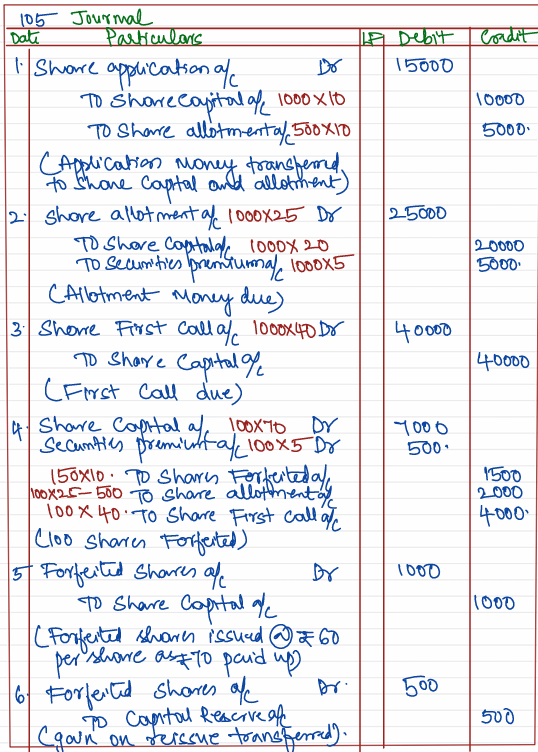 105 Journal
Date Particulars LF Debit Credit
1. Share application a/c Dr 15000
To Share Capital a/c 1000×10 10000
To Share allotment a/c 500×10 5000.
(Application Money transferred
to Share Capital and allotment)
2. Share allotment a/c 1000×25 Dr 25000
To Share Capital a/c 1000×20 20000
To Securities premium a/c 1000×5 5000.
(Allotment Money due)
3. Share First Call a/c 1000×40 Dr 40000
To Share Capital a/c 40000
(First Call due)
4. Share Capital a/c 100×70 Dr 7000
Securities premium a/c 100×5 Dr 500.
150×10. To Shares Forfeited a/c 1500
100×25-500 To Share allotment a/c 2000
100×40. To Share First Call a/c 4000.
(100 Shares Forfeited)
5 Forfeited Shares a/c Dr 1000
To Share Capital a/c 1000
(Forfeited shares issued @ ₹60
per share as ₹70 paid up)
6. Forfeited Shares a/c Dr. 500
To Capital Reserve a/c 500
(gain on reissue transferred).